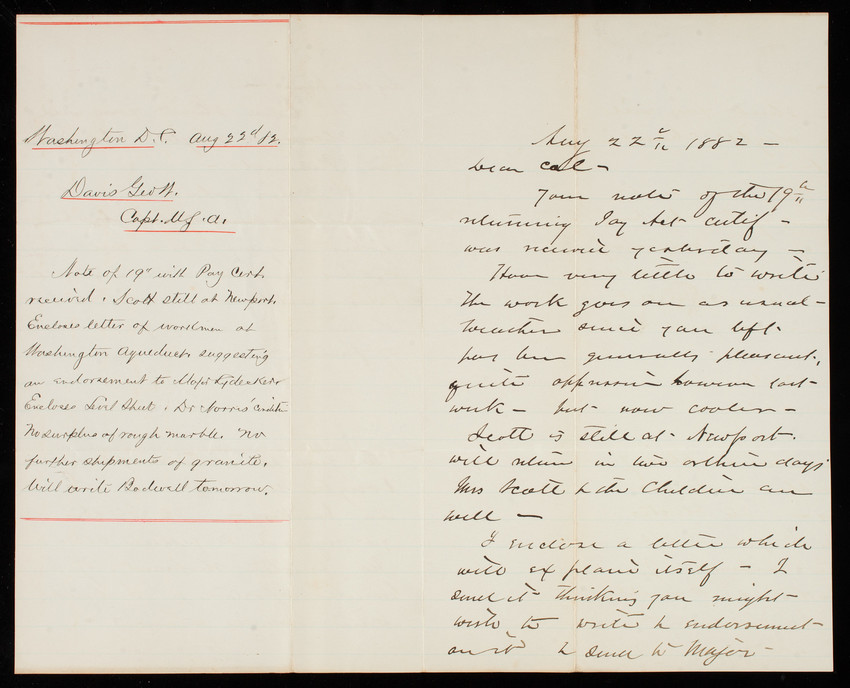 Washington D.C. Aug 22d 82.
Davis Geo W.
Capt. U.S.A.
Note of 19" with Pay Cert.
received. Scott still at Newport.
Encloses letter of workmen at
Washington Aqueduct suggesting
an endorsement to Major Lydecker.
Encloses Level Sheet. Dr Norris'
No surplus of rough marble. No
further shipments of granite.
Will write Bodwell tomorrow.
Aug 22 1882 –
Dear Col –
Your note of the 19th
returning Pay Act certif –
was received yesterday –
Have very little to write
The work goes on as usual –
Weather since you left
has been generally pleasant,
quite oppressive however last
week – but now cooler –
Scott is still at Newport.
will return in two or three days
Mrs Scott & the Children are
well –
I enclose a letter which
will explain itself – I
send it thinking you might
wish to write an endorsement
on it & send to Major